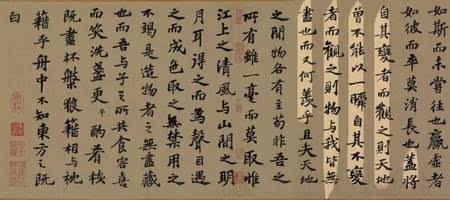 如斯而未嘗往也贏虛者
如彼而卒莫消長也蓋將
自其變者而觀之則天地
曾不能以一瞬自其不變
者而觀之則物與我皆無
盡也而又何羨乎且夫天地
之間物各有主苟非吾之
所有雖一毫而莫取惟
江上之清風與山間之明
月耳得之而為聲目遇
之而成色取之無禁用之
不竭是造物者之無盡藏
也而吾與子之所共食客喜
而笑洗盞更酌肴核
既盡杯盤狼籍相與枕
藉乎舟中不知東方之既
白